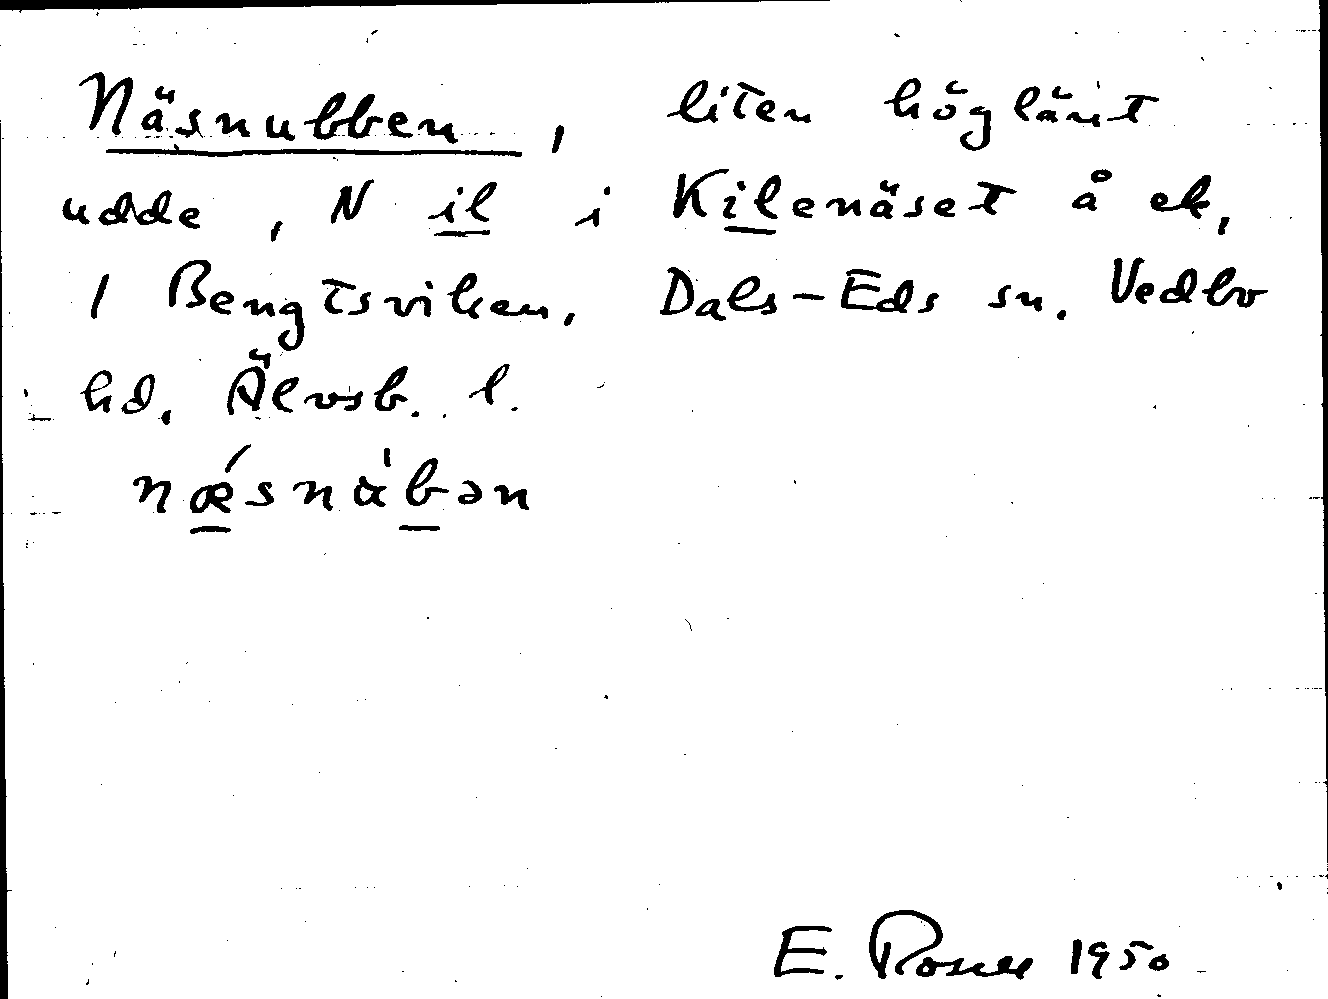 Näsnubben, liten höglänt
udde, N il i Kilenäset å ek,
1 Bengtsviken, Dals-Eds sn. Vedbo
hd. Älvsb. l.
nǽsnα̍bən
E. 1950